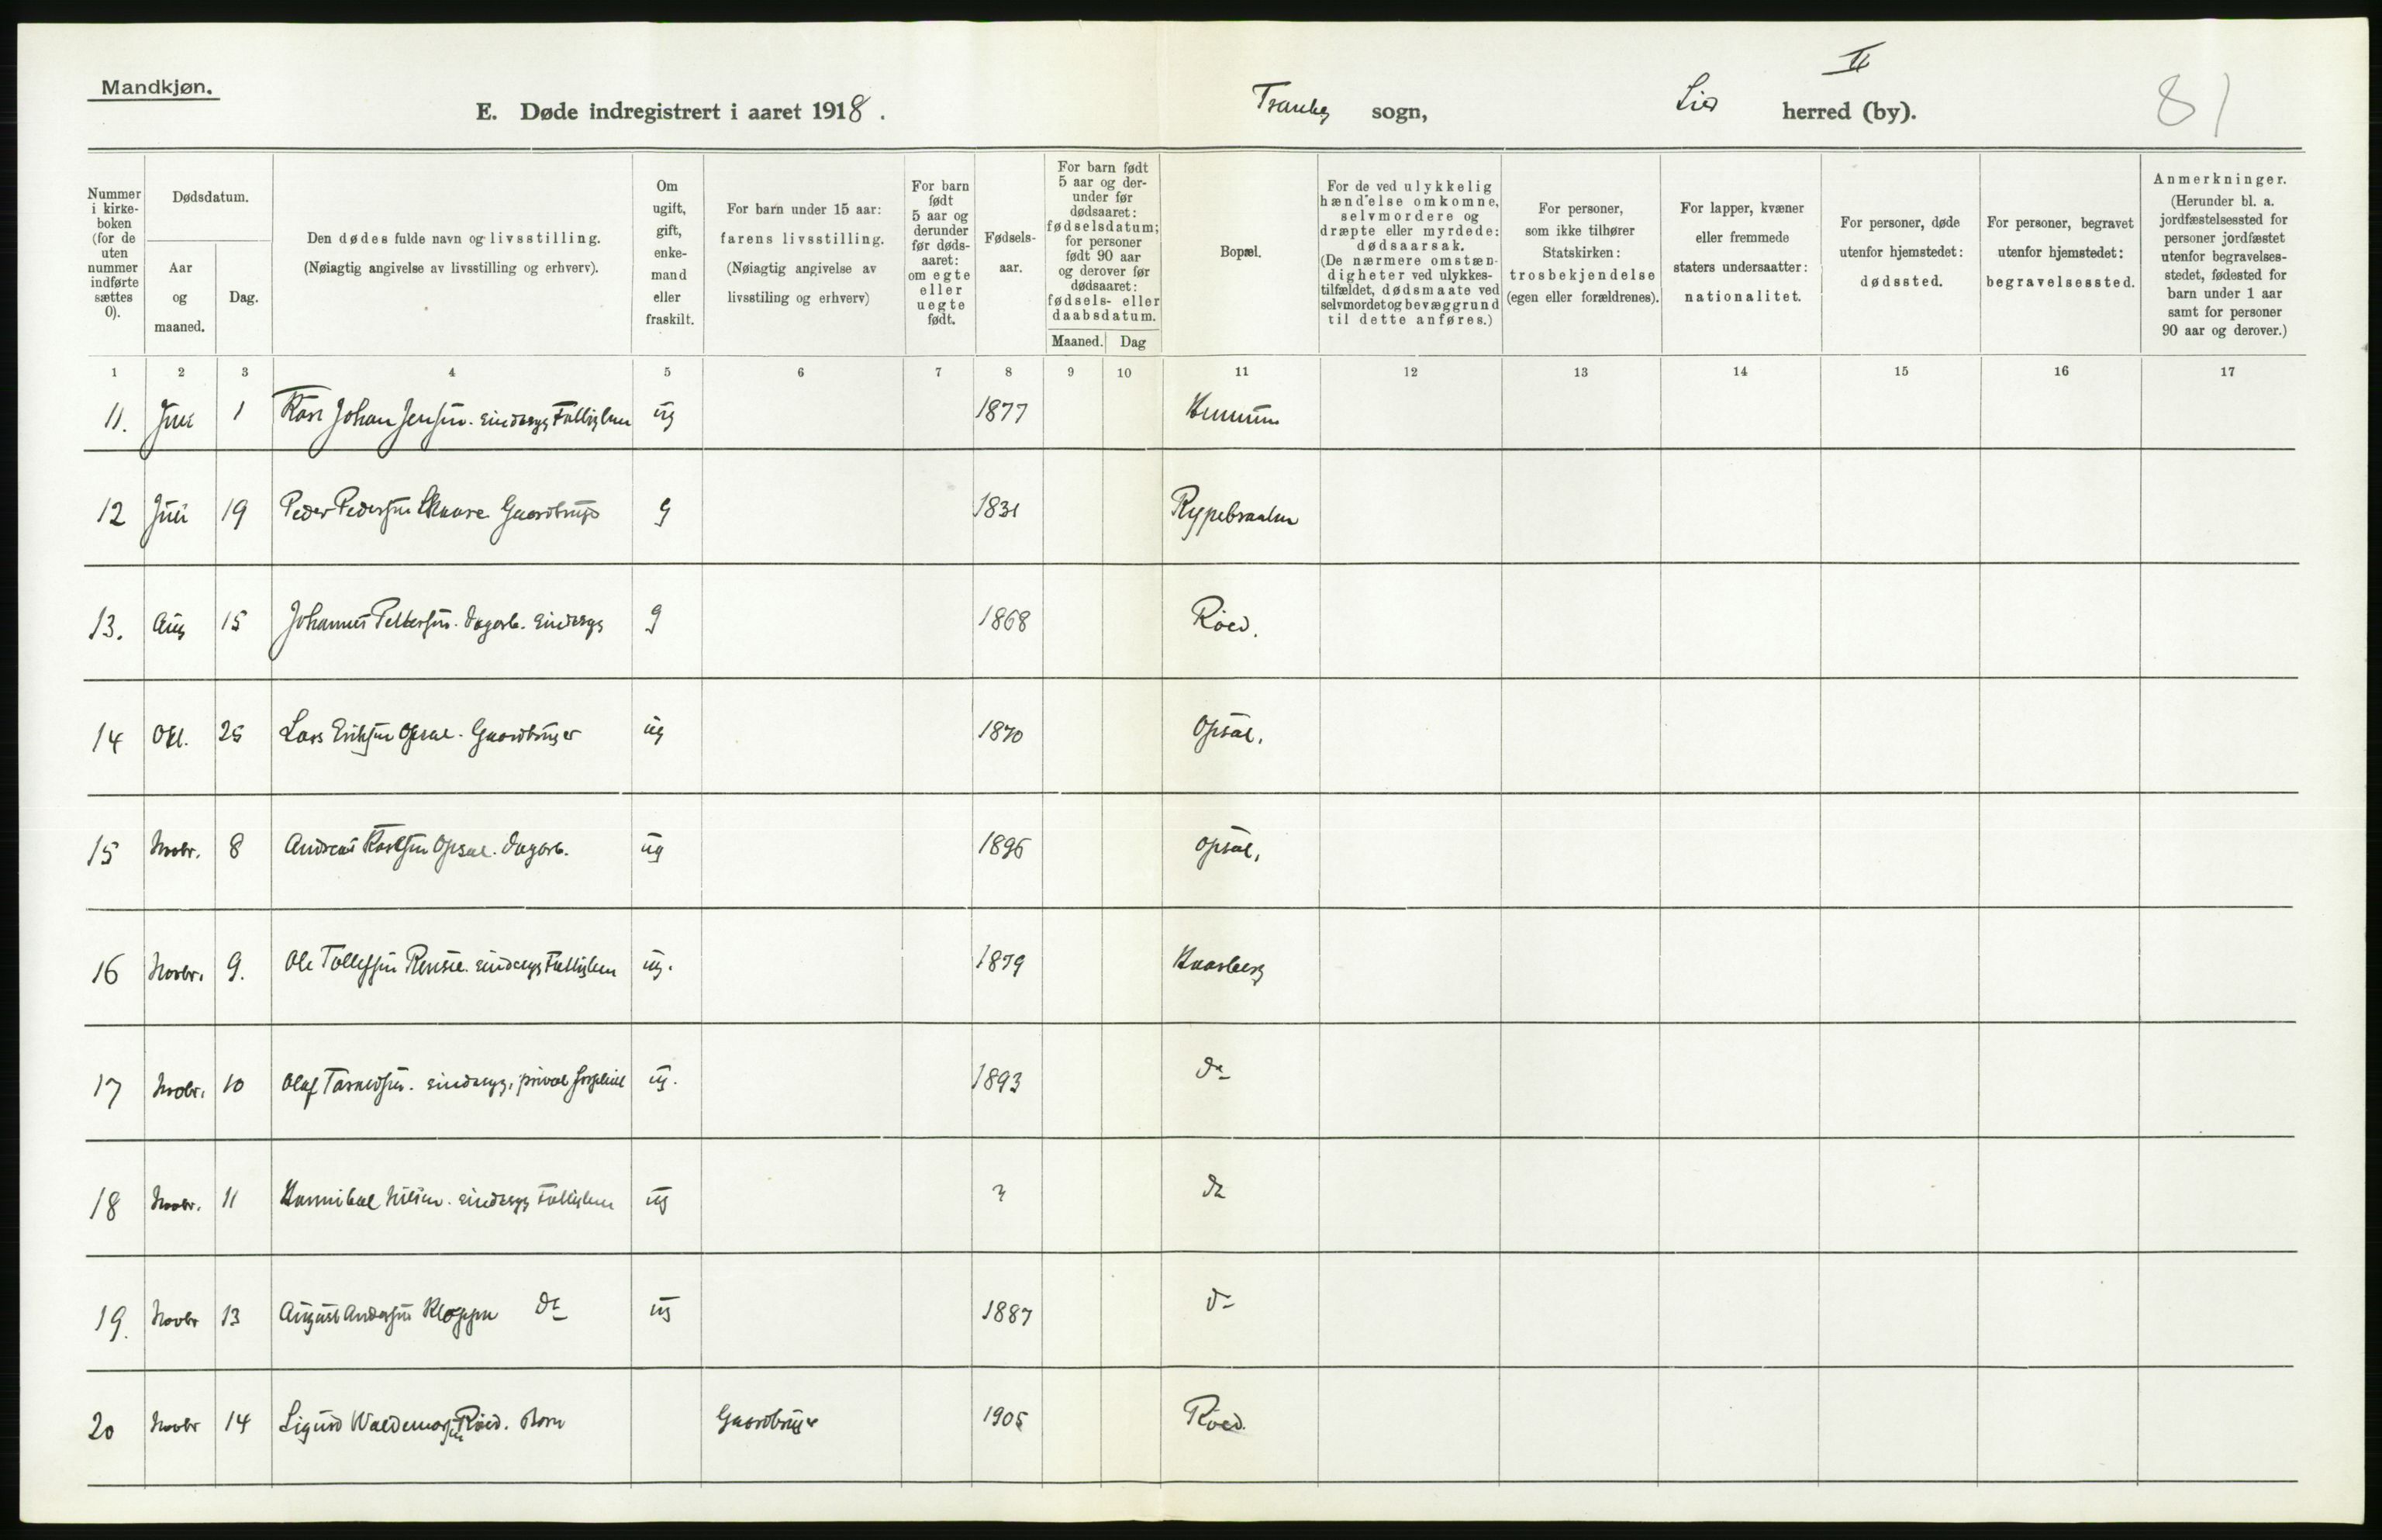 II
Mandkjøn.
E. Døde indregistrert i aaret 1918.
Tranby sogn,
Lier herred (by).
81
Nummer i kirke-boken (for de uten nummer indførte sættes 0).
Dødsdatum.
Aar og maaned.
Dag.
Den dødes fulde navn og livsstilling.
(Nøiagtig angivelse av livsstilling og erhverv).
Om ugift, gift, enke-mand eller fraskilt.
For barn under 15 aar: farens livsstilling.
(Nøiagtig angivelse av livsstiling og erhverv)
For barn født 5 aar og derunder før døds-aaret: om egte eller uegte født.
Fødsels-aar.
For barn født 5 aar og der-under før dødsaaret: fødselsdatum; for personer født 90 aar og derover før dødsaaret: fødsels- eller daabsdatum.
Maaned. Dag
Bopæl.
For de ved ulykkelig hændelse omkomne, selvmordere og dræpte eller myrdede: dødsaarsak.
(De nærmere omstæn-digheter ved ulykkes-tilfældet, dødsmaate ved selvmordet og bevæggrund til dette anføres.)
For personer, som ikke tilhører Statskirken: trosbekjendelse (egen eller forældrenes).
For lapper, kvæner eller fremmede staters undersaatter: nationalitet.
For personer, døde utenfor hjemstedet: dødssted.
For personer, begravet utenfor hjemstedet: begravelsessted.
Anmerkninger.
(Herunder bl. a. jordfæstelsessted for personer jordfæstet utenfor begravelses-stedet, fødested for barn under 1 aar samt for personer 90 aar og derover.)
1 2 3 4 5 6 7 8 9 10 11 12 13 14 15 16 17
11. Juli 1 Karl Johan Jensen. sindssyg Fattiglem ug 1877
12 Juli 19 Peder Pedersen Gaardbruger g 1831 Rypebraaten
13. Aug 15 Johannes Pettersen. Dagarb. sindssyg g 1868 Røed.
14 Okt. 25 Lars Eriksen Opsal. Gaardbruger ug 1870 Opsal.
15 Novbr. 8 Andreas Karlsen Opsal. Dagarb. ug 1896 Opsal.
16 Novbr. 9. Ole Tollefsen sindssyg Fattiglem ug. 1879
17 Novbr. 10 Olaf sindssyg, privat forpleiet ug. 1893 do
18 Novbr. 11 Hannibal Nilsen. sindssyg Fattiglem ug ? do
19. Novbr 13 August Andersen Kloppen do ug 1887 do
20 Novbr 14 Sigurd Waldemarsen Røed. Barn Gaardbruger 1905 Røed.